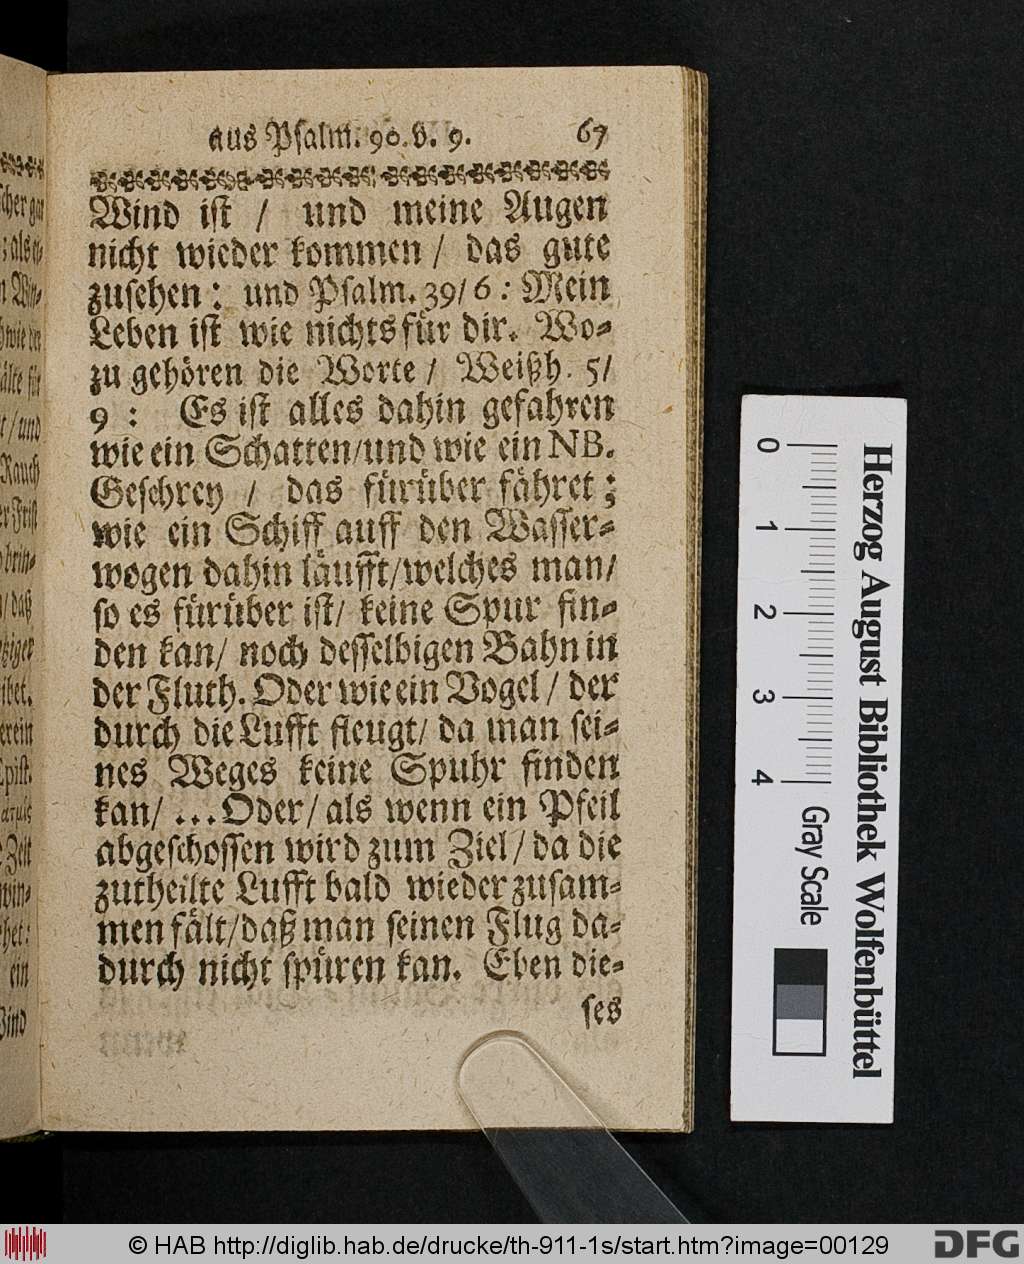 aus Psalm. 90. v. 9. 67
Wind ist / und meine Augen
nicht wieder kommen / das gute
zusehen: und Psalm. 39/6: Mein
Leben ist wie nichts für dir. Wo-
zu gehören die Worte / Weißh. 5/
9: Es ist alles dahin gefahren
wie ein Schatten/und wie ein NB.
Geschrey / das fürüber fähret;
wie ein Schiff auff den Wasser-
wogen dahin läufft/welches man/
so es fürüber ist/ keine Spur fin-
den kan/ noch desselbigen Bahn in
der Fluth. Oder wie ein Vogel / der
durch die Lufft fleugt/ da man sei-
nes Weges keine Spuhr finden
kan/ ... Oder/ als wenn ein Pfeil
abgeschossen wird zum Ziel/ da die
zutheilte Lufft bald wieder zusam-
men fält/daß man seinen Flug da-
durch nicht spüren kan. Eben die-
ses
0 1 2 3 4
Gray Scale
Herzog August Bibliothek Wolfenbüttel
© HAB http://diglib.hab.de/drucke/th-911-1s/start.htm?image=00129
DFG